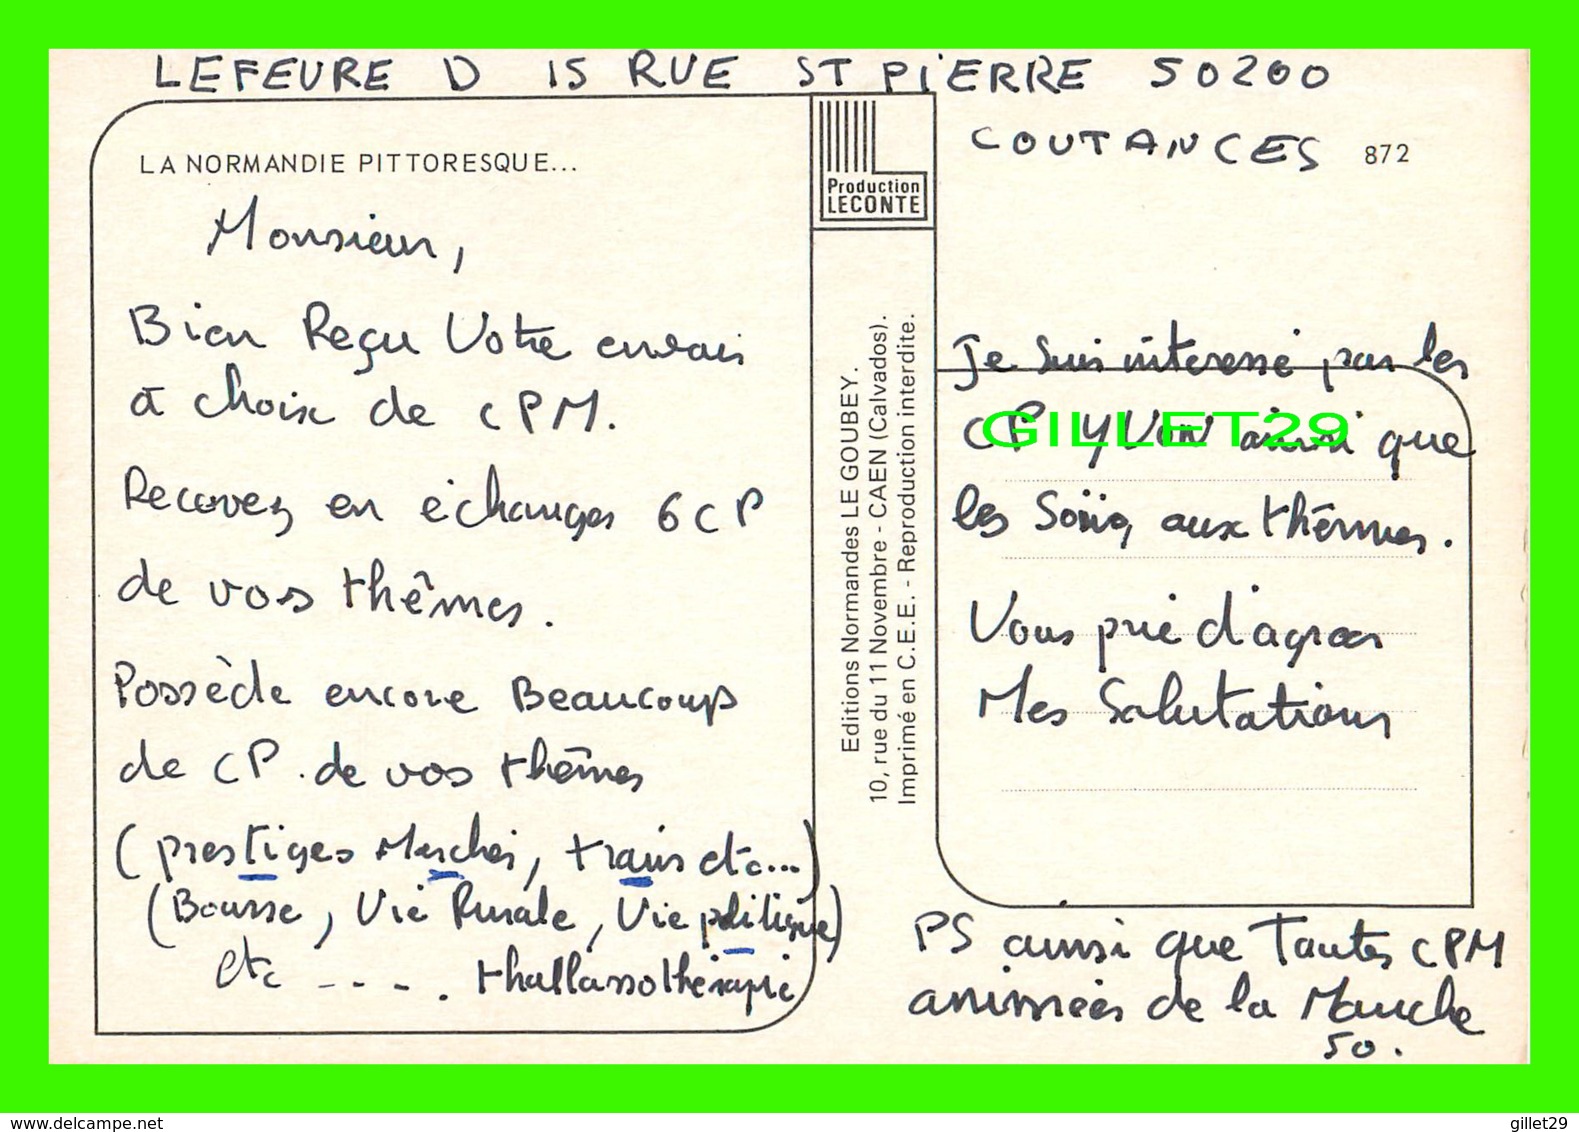 LEFEVRE D 15 RUE ST PiERRE 50200
COUTANCES
872
LA NORMANDIE PITTORESQUE...
Production
LECONTE
Monsieur,
Bien Reçu Votre envoi
à choix de CPM.
Recevez en échanges 6 CP
de vos thêmes.
Possède encore Beaucoup
de CP. de vos thêmes
(prestiges Marchés, trains etc...)
(Bourse, Vie Rurale, Vie politique)
etc - - - . thallassothérapie
Editions Normandes LE GOUBEY.
10, rue du 11 Novembre - CAEN (Calvados).
Imprimé en C.E.E. - Reproduction interdite.
Je suis intéressé par les
CP YVON ainsi que
GILLET29
les aux thêmes.
Vous prie d'agréer
Mes Salutations
PS ainsi que Toutes CPM
animées de la Manche
50.
www.delcampe.net
gillet29